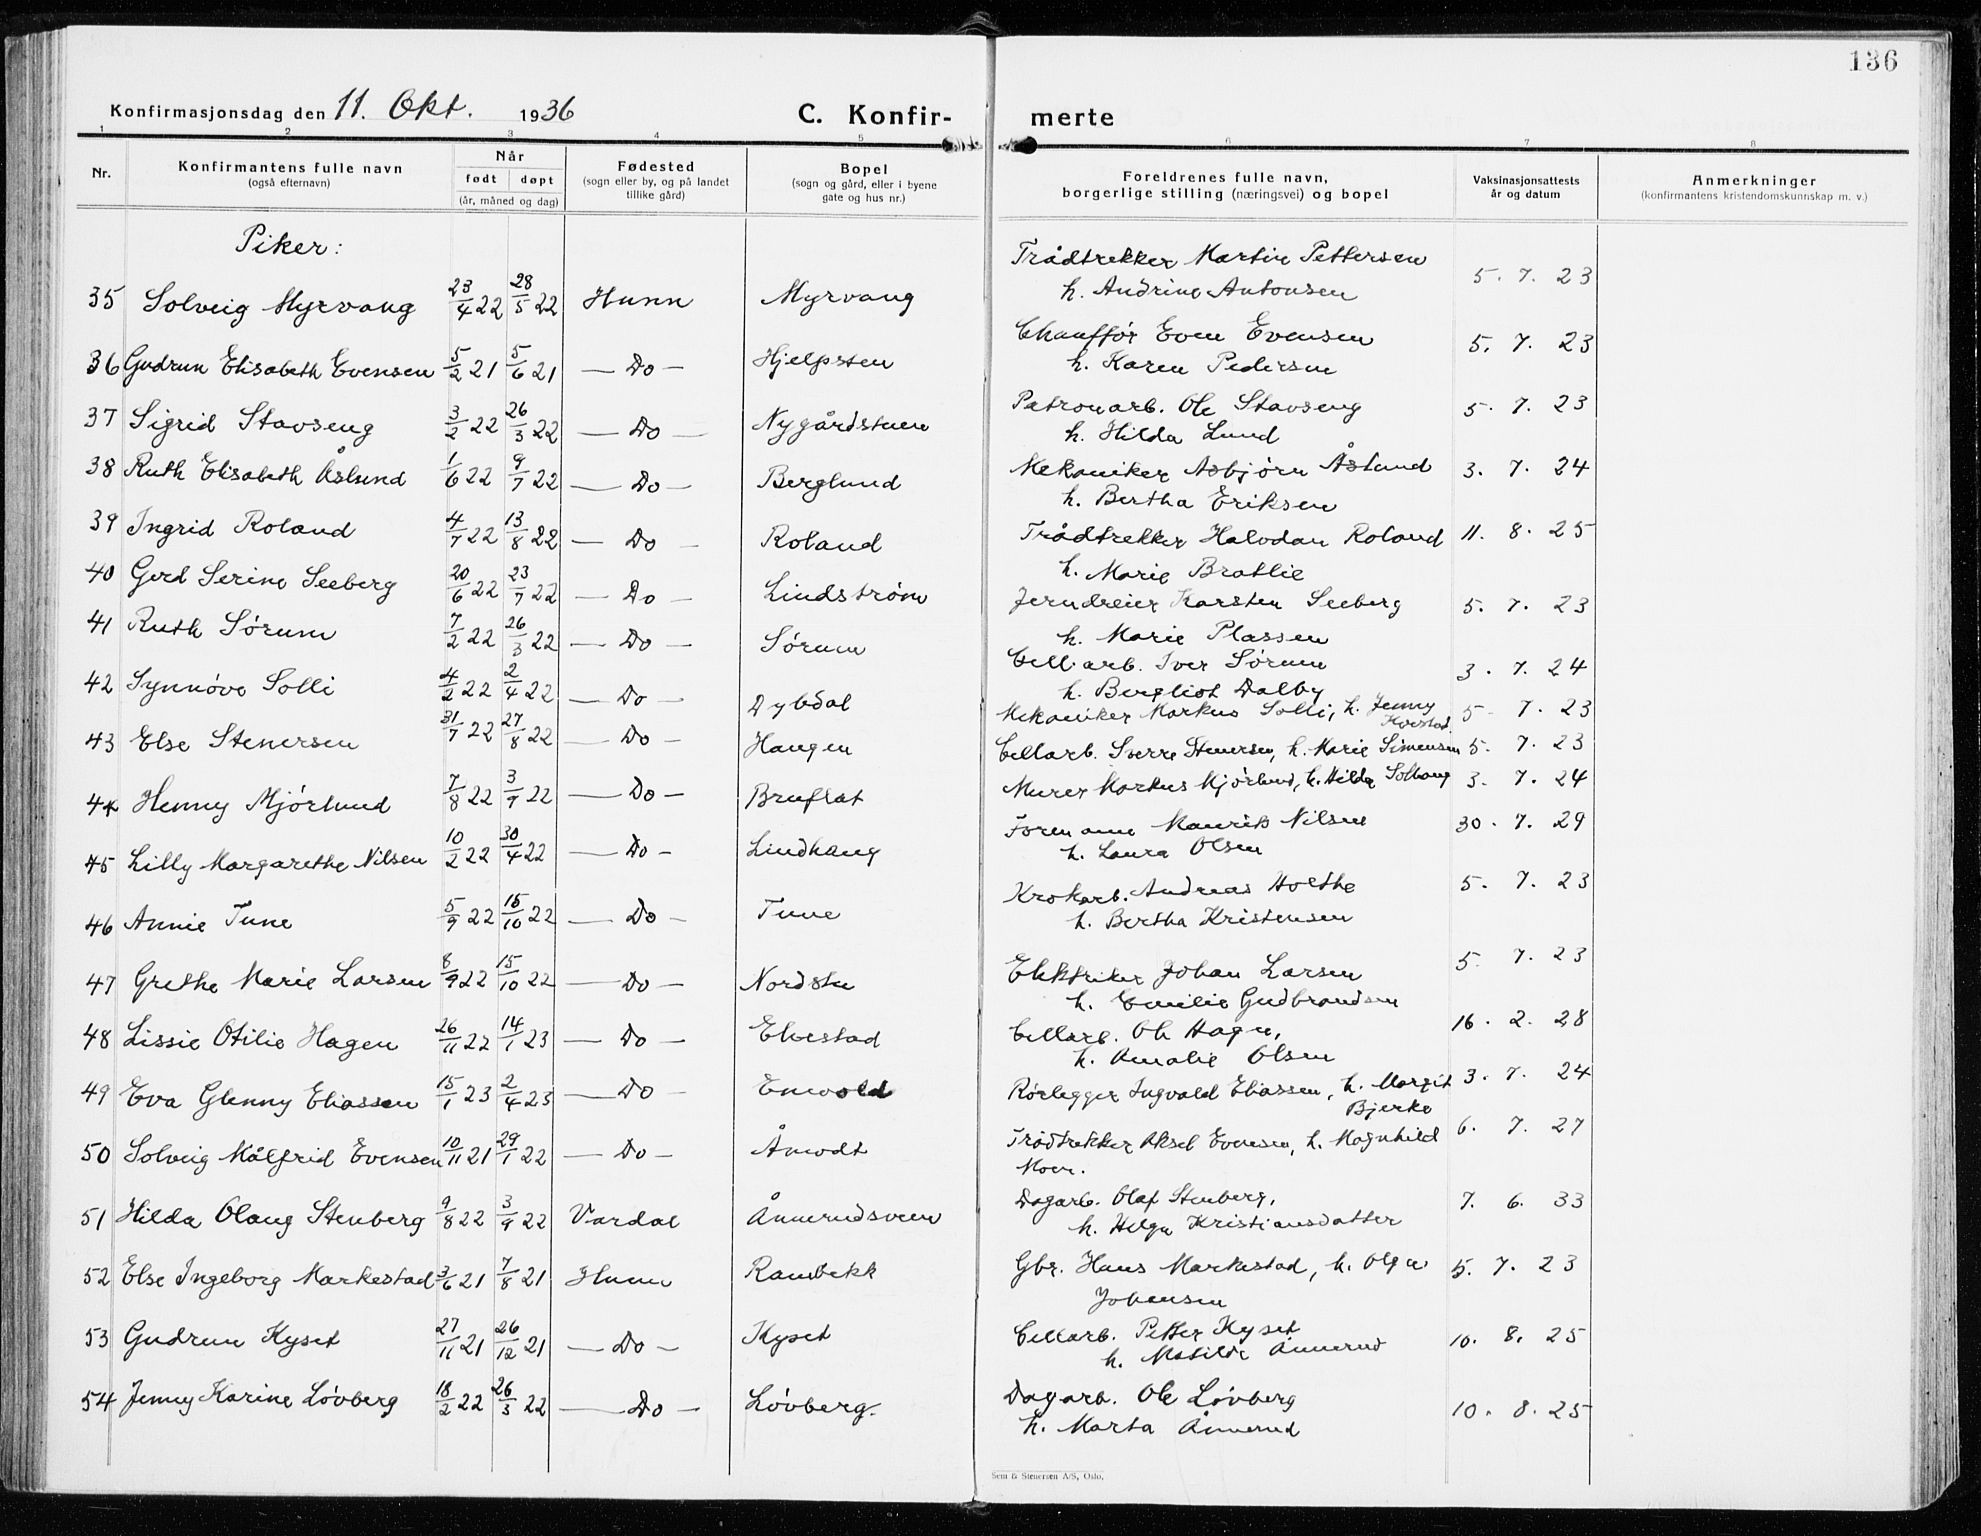 136
Konfirmasjonsdag den 11. Okt. 1936
C. Konfir- merte
1 2 3 4 5 6 7 8
Nr. Konfirmantens fulle navn (også efternavn) Når født døpt (år, måned og dag) Fødested (sogn eller by, og på landet tillike gård) Bopel (sogn og gård, eller i byene gate og hus nr.) Foreldrenes fulle navn, borgerlige stilling (næringsvei) og bopel Vaksinasjonsattests år og datum Anmerkninger (konfirmantens kristendomskunnskap m. v.)
Piker:
35 Solveig Myrvang 23/4 22 28/5 22 Hunn Myrvang Trådtrekker Martin Pettersen h. Andrine Antonsen 5. 7. 23
36 Gudrun Elisabeth Evensen 5/2 21 5/6 21 — Do — Hjelpsten Chauffør Even Evensen h. Karen Pedersen 5. 7. 23
37 Sigrid Stavseng 3/2 22 26/3 22 — Do — Nygårdstuen Patronarb. Ole Stavseng h. Hilda Lund 5. 7. 23
38 Ruth Elisabeth Åslund 1/6 22 9/7 22 — Do — Berglund Mekaniker Asbjørn Åslund h. Bertha Eriksen 3. 7. 24
39 Ingrid Roland 4/7 22 13/8 22 — Do — Roland Trådtrekker Halvdan Roland h. Marie Bratlie 11. 8. 25
40 Gerd Serine Seeberg 20/6 22 23/7 22 — Do — Lindstrøm Jerndreier Karsten Seeberg h. Marie Plassen 5. 7. 23
41 Ruth Sørum 7/2 22 26/3 22 — Do — Sørum Cellarb. Iver Sørum h. Bergliot Dalby 3. 7. 24
42 Synnøve Solli 4/2 22 2/4 22 — Do — Dybdal Mekaniker Markus Solli, h. Jenny 5 7. 23
43 Else Stenersen 31/7 22 27/8 22 — Do — Haugen Cellarb. Sverre Stenersen, h. Marie Simensen 5. 7. 23
44 Henny Mjørlund 7/8 22 3/9 22 — Do — Bruflat Murer Markus Mjørlund, h. Hilda Solbang 3. 7. 24
45 Lilly Margarethe Nilsen 10/2 22 30/4 22 — Do — Lindhaug Forenann Maurits Nilsen h. Laura Olsen 30. 7. 29
46 Annie Tune 5/9 22 15/10 22 — Do — Tune Krokarb. Andreas Holthe h. Bertha Kristensen 5. 7. 23
47 Grethe Marie Larsen 8/9 22 15/10 22 — Do — Nordstu Elektriker Johan Larsen h. Emilie Gudbrandsen 5. 7. 23
48 Lissie Otilie Hagen 26/11 22 14/1 23 — Do — Elvestad Cellarb. Ole Hagen, h. Amalie Olsen 16. 2. 28
49 Eva Glenny Eliassen 15/1 23 2/4 23 — Do — Enevold Rørlegger Ingvald Eliassen, h. Margit Bjerke 3. 7. 24
50 Solveig Målfrid Evensen 10/11 21 29/1 22 — Do — Åmodt Trådtrekker Aksel Evensen, h. Magnhild Moen. 6. 7. 27
51 Hilda Olaug Stenberg 9/8 22 3/9 22 Vardal Ånnerudsveen Dagarb. Olaf Stenberg, h. Helga Kristiansdatter 7. 6. 33
52 Else Ingeborg Markestad 3/6 21 7/8 21 Hunn Rambekk Gbr. Hans Markestad, h. Olga Johansen 5. 7. 23
53 Gudrun Kyset 27/11 21 26/12 21 — Do — Kyset Cellarb. Petter Kyset h. Matilde Ånnerud 10. 8. 25
54 Jenny Karine Løvberg 18/2 22 26/3 22 — Do — Løvberg. Dagarb. Ole Løvberg h. Marta Ånnerud 10. 8. 25
Sem & Stenersen A/S, Oslo.